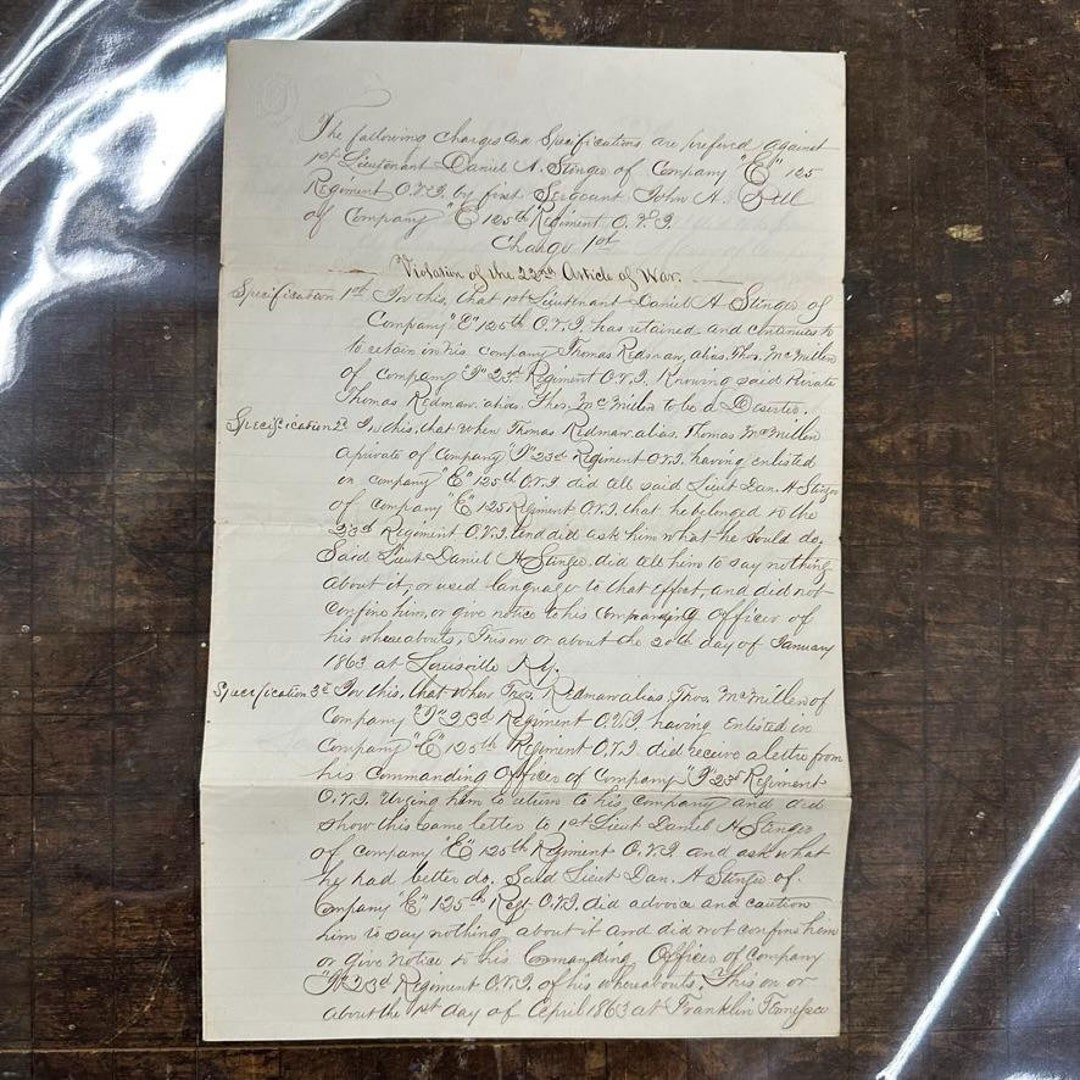 The following Charges and Specifications are prefered against
1st Lieutenant Daniel A. Stinger of Company "E" 125
Regiment O.V.I. by first Sergeant John A.
of Company "E" 125th Regiment O.V.I.
Charge 1st
Violation of the 22nd Article of War.
Specification 1st In this, that 1st Lieutenant Daniel A Stinger of
Company "E" 125th O.V.I. has retained and continues to
to retain in his company Thomas Redman, alias Thos. McMillen
of Company 23d Regiment O.V.I. Knowing said Private
Thomas Redman alias Thos. McMillen to be a Deserter.
Specification 2d In this, that when Thomas Redman alias Thomas McMillen
a private of Company 23d Regiment O.V.I. having enlisted
in company "E" 125th O.V.I did tell said Lieut Dan. A Stinger
of Company "E" 125 Regiment O.V.I. that he belonged to the
23d Regiment O.V.I. and did ask him what he should do,
Said Lieut Daniel A Stinger did tell him to say nothing
about it, or used language to that effect, and did not
confine him, or give notice to his Commanding Officer of
his whereabouts, This on or about the 20th day of January
1863 at Louisville Ky.
Specification 3d In this, that when Thos. Redman alias Thos. McMillen of
Company 23d Regiment O.V.I. having enlisted in
Company "E" 125th Regiment O.V.I did receive a letter from
his commanding Officer of Company 23d Regiment
O.V.I. Urging him to return to his company and did
show this same letter to 1st Lieut Daniel A Stinger
of Company "E" 125th Regiment O.V.I and ask what
he had better do. Said Lieut Dan. A Stinger of
Company "E" 125th Regt O.V.I. did advoice and caution
him to say nothing about it and did not confine him
or give notice to his Commanding Officer of Company
23d Regiment O.V.I. of his whereabouts. This on or
about the 1st day of April 1863 at Franklin Tennessee